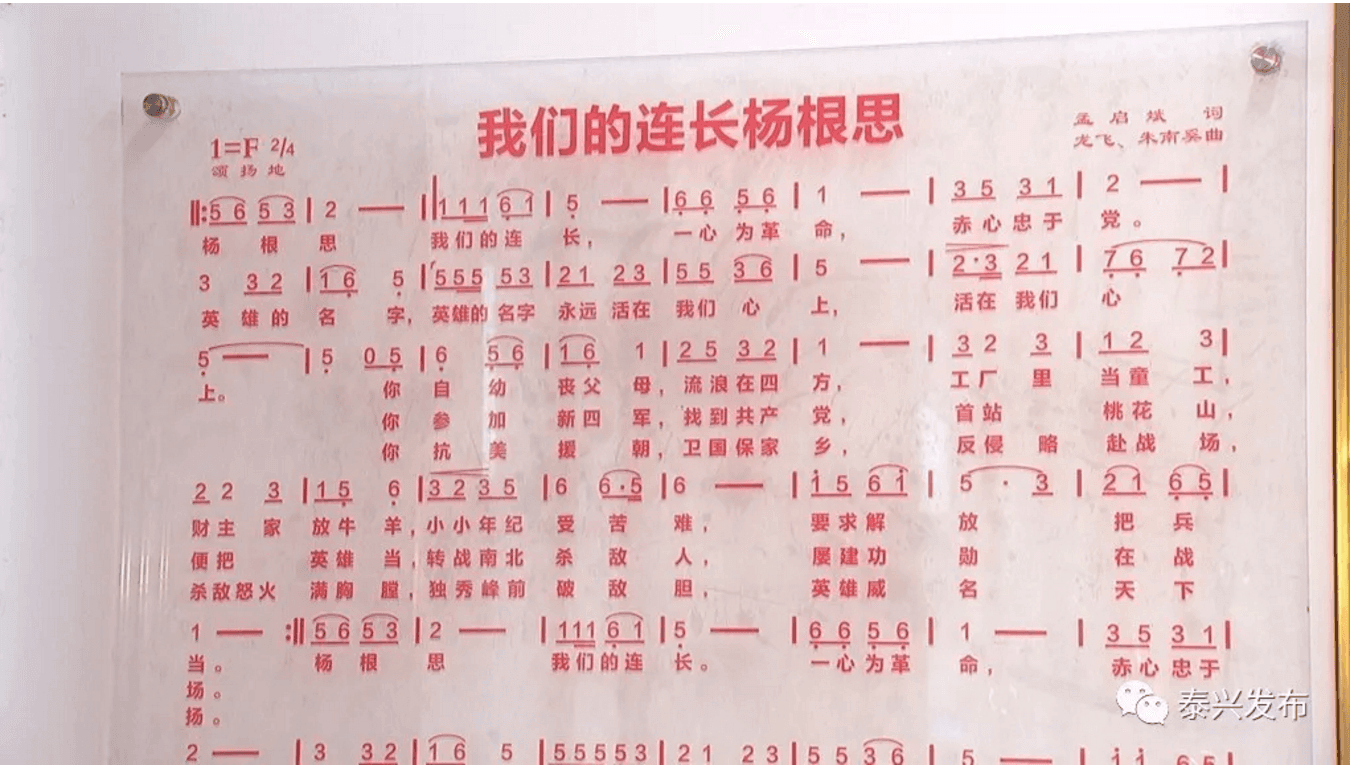 我们的连长杨根思
1=F 2/4
颂扬地
孟启斌 词
龙飞、朱南奚曲
‖:5 6 5 3 | 2 — ‖ 1 1 1 6 1 | 5 — | 6 6 5 6 | 1 — | 3 5 3 1 | 2 — |
杨根思 我们的连长, 一心为革命, 赤心忠于党。
3 3 2 | 1 6 5 | 5 5 5 5 3 | 2 1 2 3 | 5 5 3 6 | 5 — | 2·3 2 1 | 7 6 7 2 |
英雄的名字, 英雄的名字 永远活在我们心上, 活在我们心
5 — | 5 0 5 | 6 5 6 | 1 6 1 | 2 5 3 2 | 1 — | 3 2 3 | 1 2 3 |
上。 你自幼丧父母, 流浪在四方, 工厂里当童工,
你参加新四军, 找到共产党, 首站桃花山,
你抗美援朝, 卫国保家乡, 反侵略赴战场,
2 2 3 | 1 5 6 | 3 2 3 5 | 6 6·5 | 6 — | 1 5 6 1 | 5 · 3 | 2 1 6 5 |
财主家放牛羊, 小小年纪受苦难, 要求解放把兵
便把英雄当, 转战南北杀敌人, 屡建功勋在战
杀敌怒火满胸膛, 独秀峰前破敌胆, 英雄威名天下
1 — :‖ 5 6 5 3 | 2 — | 1 1 1 6 1 | 5 — | 6 6 5 6 | 1 — | 3 5 3 1 |
当。 杨根思 我们的连长。 一心为革命, 赤心忠于
场。
扬。
2 — | 3 3 2 | 1 6 5 | 5 5 5 5 3 | 2 1 2 3 | 5 5 3 6 | 5 — | 1 1 6 5 |
泰兴发布